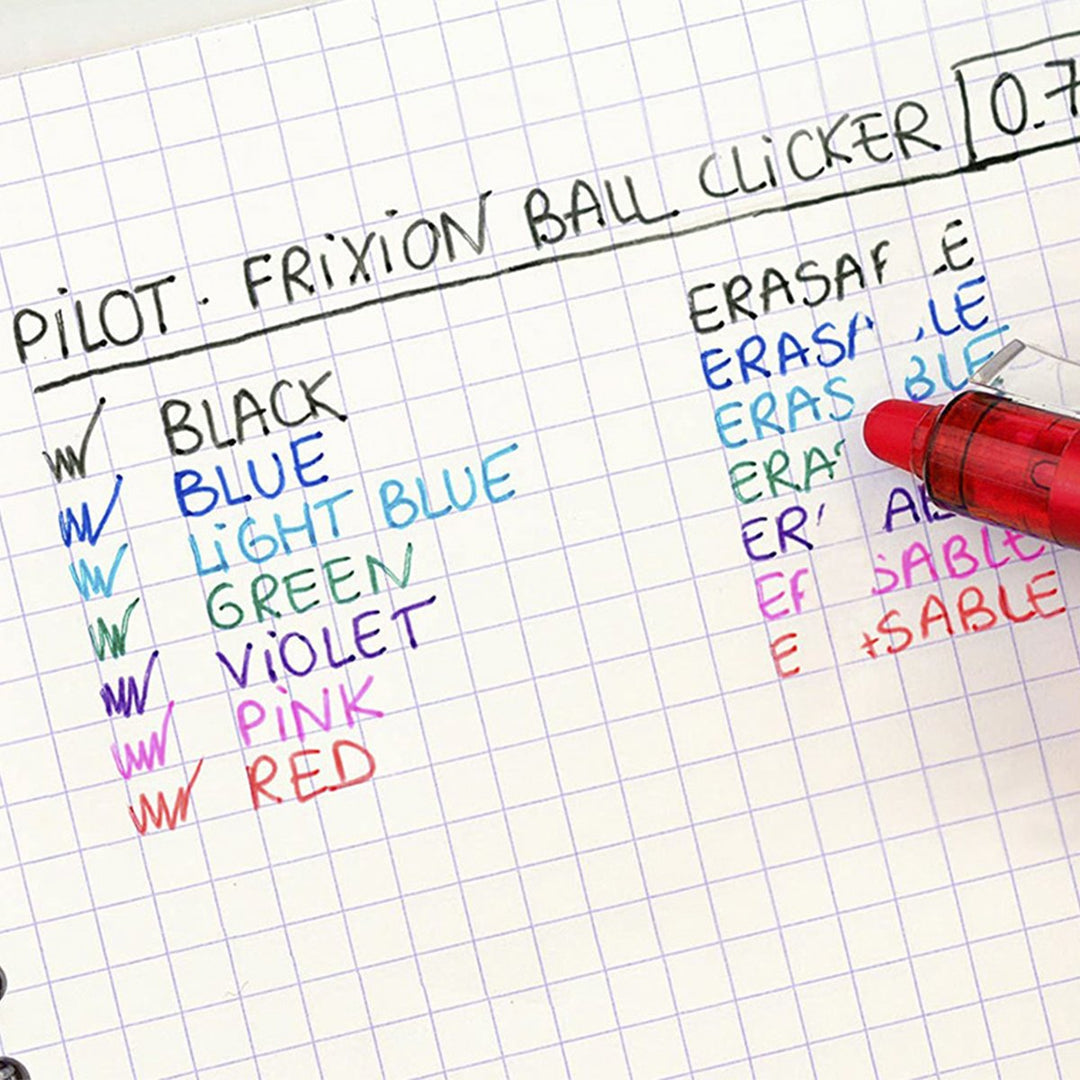 PiLOT · FRiXiON BALL CLiCKER 0.7
BLACK
BLUE
LiGHT BLUE
GREEN
ViOLET
PiNK
RED
ERASA LE
ERAS LE
ERAS BLE
ERA
ER AB
E SABLE
E SABLE